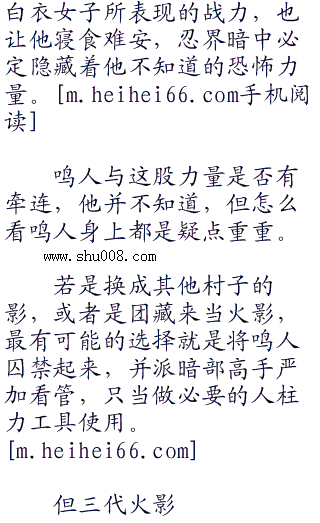 白衣女子所表现的战力，也
让他寝食难安，忍界暗中必
定隐藏着他不知道的恐怖力
量。[m.heihei66.com手机阅
读]
鸣人与这股力量是否有
牵连，他并不知道，但怎么
看鸣人身上都是疑点重重。
www.shu008.com
若是换成其他村子的
影，或者是团藏来当火影，
最有可能的选择就是将鸣人
囚禁起来，并派暗部高手严
加看管，只当做必要的人柱
力工具使用。
[m.heihei66.com]
但三代火影